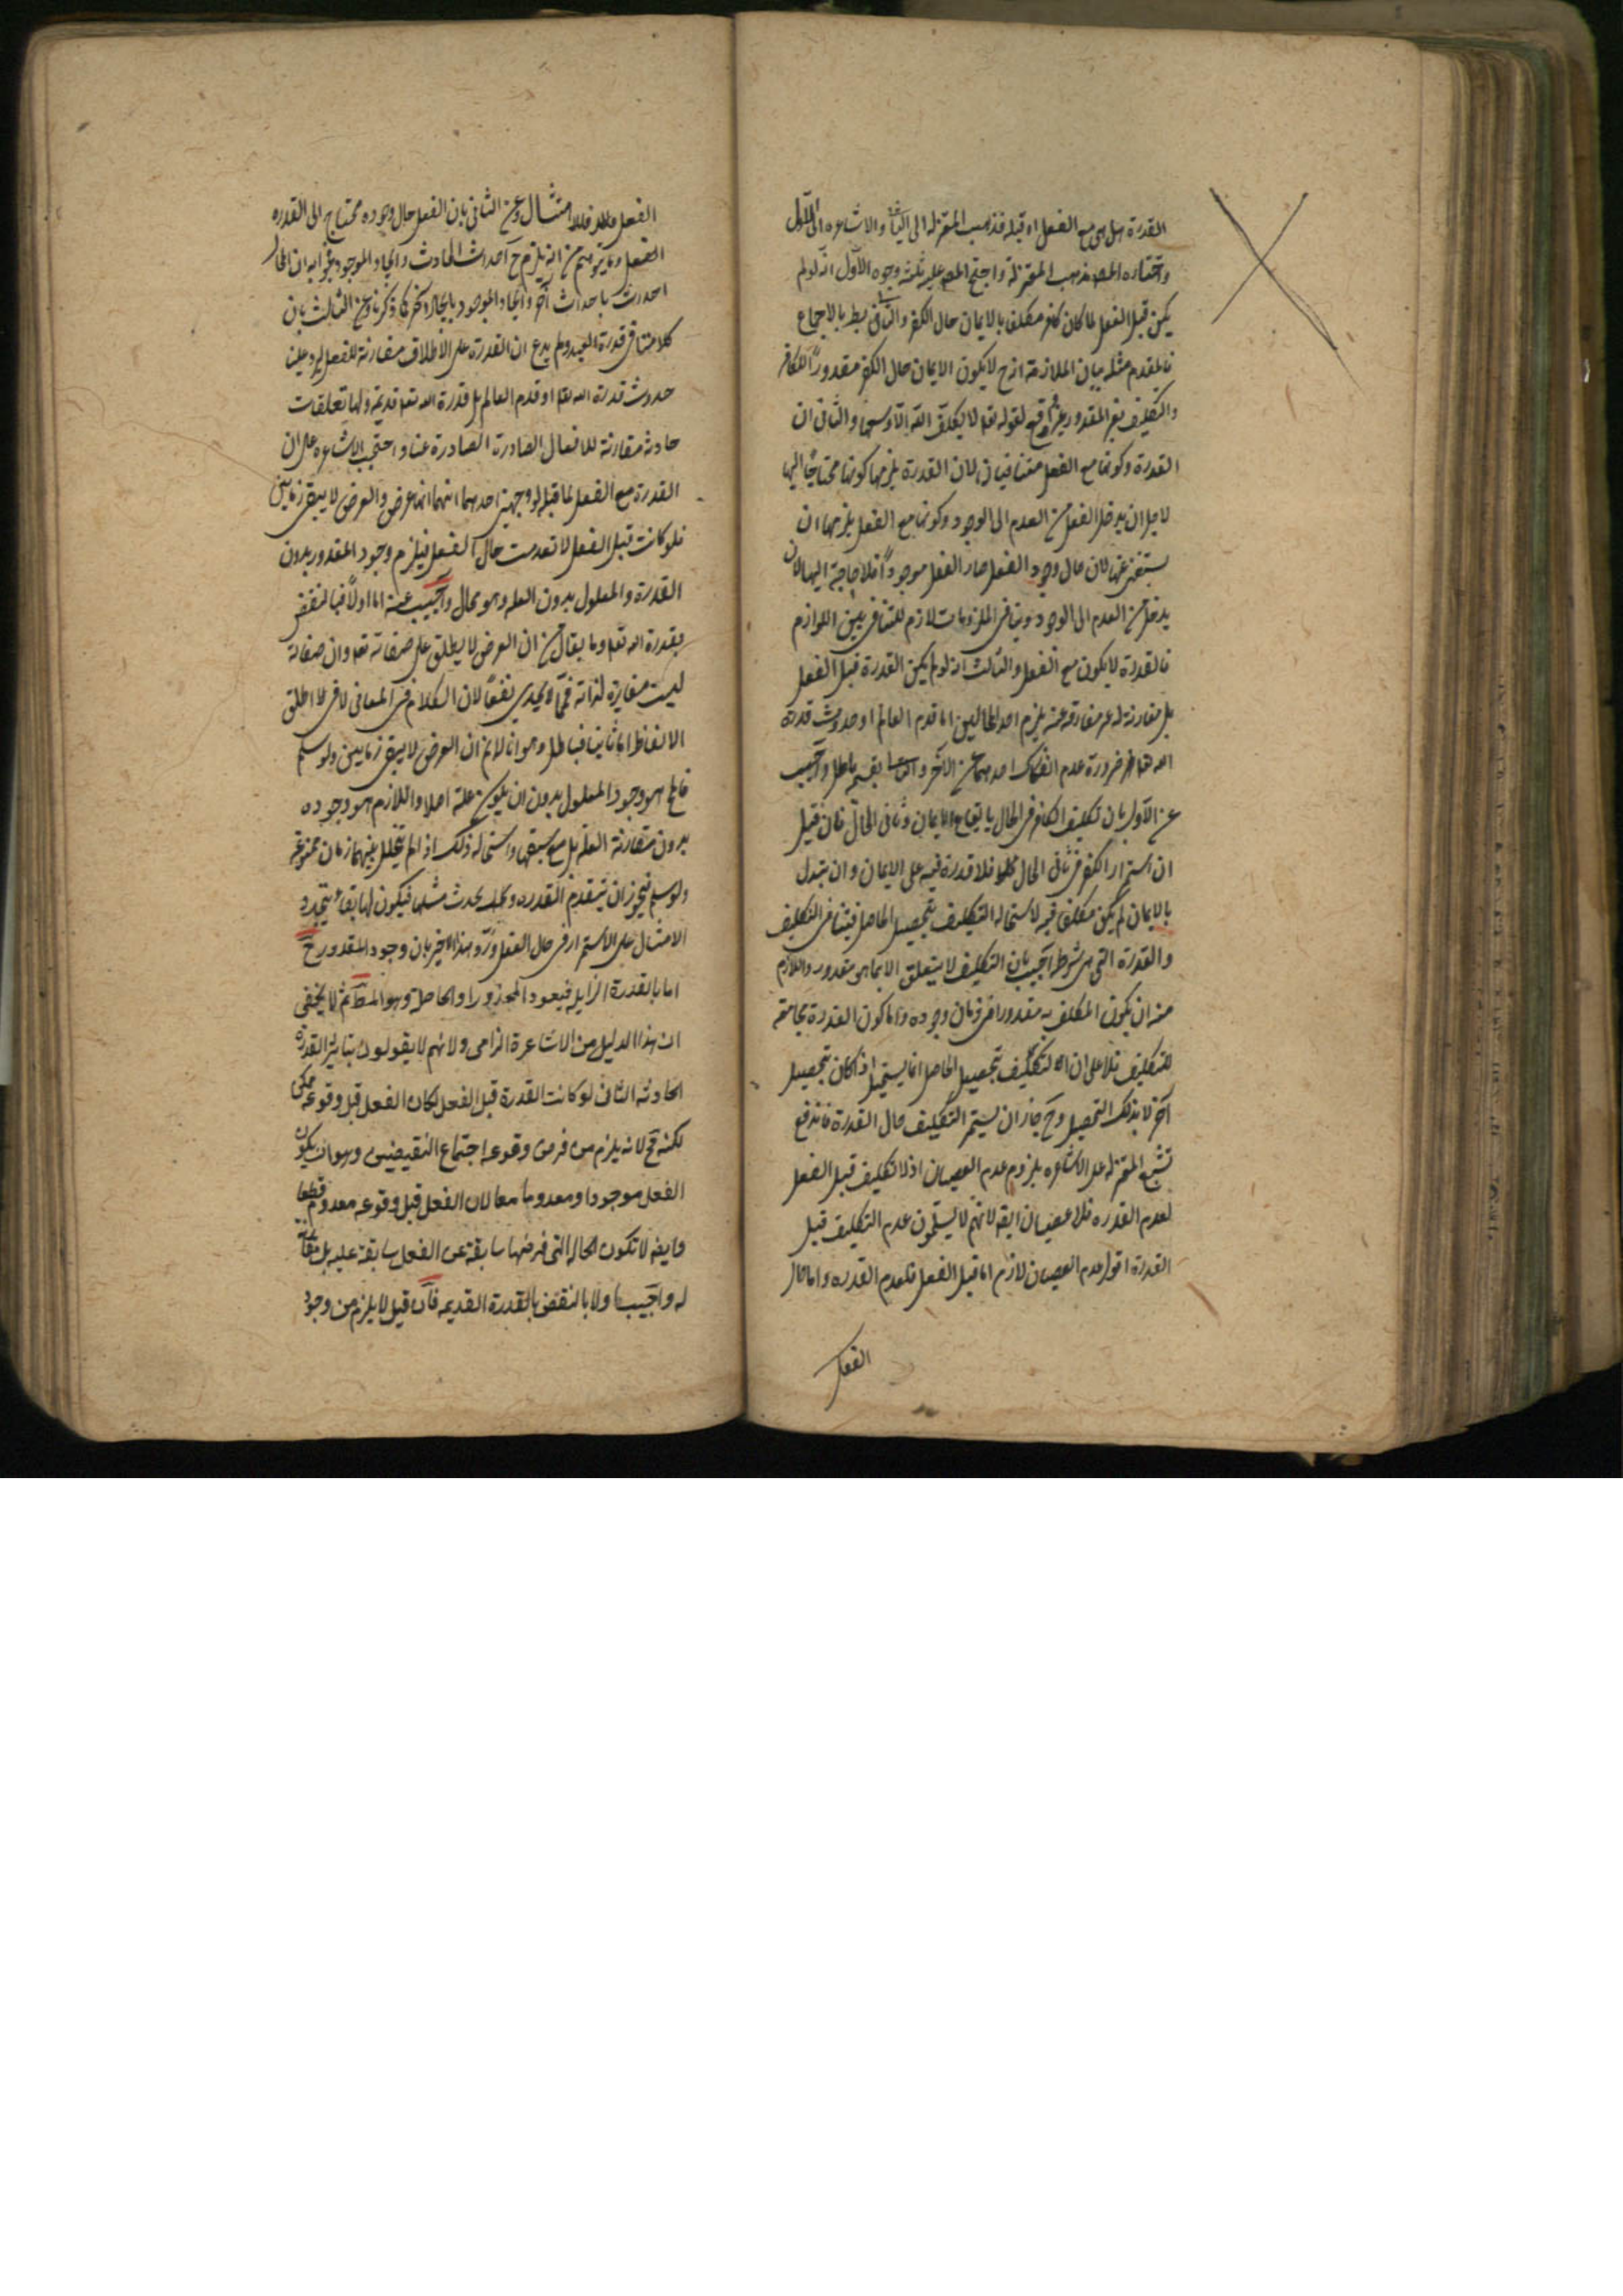 القدرة هل هى مع الفعل او قبله فذهب المعتزله الى الثانى والاشاعره الى الاول
واختاره المصـ مذهب المعتزلة واحتج المصـ عليه بثلثة وجوه الاول انه لو لم
يكن قبل الفعل لما كان كافر مكلفا بالايمان حال الكفر والتالى بط بالاجماع
فالمقدم مثله بيان الملازمة انه ح لا يكون الايمان حال الكفر مقدوراً للكافر
والتكليف بغير المقدور غير واقع لقوله تعـ لا يكلف الله الا وسعها والثانى ان
القدرة وكونها مع الفعل متنافيان لان القدرة يلزمها كونها محتاجًا اليها
لاجل ان يدخل الفعل من العدم الى الوجود وكونها مع الفعل يلزمها ان
يستغنى عنها لان حال وجود الفعل صار الفعل موجوداً فلا حاجة اليها لان
يدخل من العدم الى الوجود وتنافى الملزومات لازم للتنافى بين اللوازم
فالقدرة لا يكون مع الفعل والثالث انه لو لم يكن القدرة قبل الفعل
بل مقارنة له غير مفارقة عنه يلزم احد المحالين اما قدم العالم او حدوث قدرة
الله تعـ ضرورة عدم انفكاك احدهما عن الآخر والتالى بقسميه باطل واجيب
عن الاول بان تكليف الكافر فى الحال بايقاع الايمان فى ثانى الحال فان قيل
ان استمر الكفر فى ثانى الحال فلا قدرة فيه على الايمان وان تبدل
بالايمان لم يكن مكلفا فيه لاستحاله التكليف بتحصيل الحاصل فيتنافى التكليف
والقدرة التى هى شرطه اجيب بان التكليف لا يتعلق الا بما هو مقدور واللازم
منه ان يكون المكلف به مقدورا فى زمان وجوده واما كون القدرة مجامعة
للتكليف فلا على ان التكليف بتحصيل الحاصل انما يستحيل اذا كان بتحصيل
آخر لا بذلك التحصيل وح جاز ان يستمر التكليف حال القدرة فاندفع
تشنيع المعتزله على الاشاعره بلزوم عدم العصيان اذ لا تكليف قبل الفعل
لعدم القدره فلا عصيان ايضه لانهم لا يسلمون عدم التكليف قبل
القدرة اقول عدم العصيان لازم اما قبل الفعل فلعدم القدره واما حال
الفعل
الفعل فلا امتثال وعن الثانى بان الفعل حال وجوده محتاج الى القدره
الفعل وما يتوهم من انه يلزم ح احداث الحادث وايجاد الموجود فجوابه ان المحال
احداث باحداث آخر وايجاد الموجود بايجاد آخر كما ذكرنا وعن الثالث بان
كلامنا فى قدرة العبد ولم يدع ان القدرة على الاطلاق مقارنة للفعل ليرد علينا
حدوث قدرة الله تعـ او قدم العالم بل قدرة الله تعـ قديمة ولها تعلقات
حادثة مقارنة للافعال الصادرة الصادرة عنا واحتجت الاشاعره على ان
القدرة مع الفعل لا قبله لوجهين احدهما انها عرض والعرض لا يبقى زمانين
فلو كانت قبل الفعل لانعدمت حال الفعل فيلزم وجود المقدور بدون
القدرة والمعلول بدون العله وهو محال واجيب عنه اما اولاً فبالنقض
بقدرة الله تعـ وما يقال من ان العرض لا يطلق على صفاته تعـ وان صفاته
ليست مغايرة لذاته فمما لا يجدى نفعًا لان الكلام فى المعانى لا فى اطلاق
الالفاظ اما ثانيا فباطل وهو انا لانم ان العرض لا يبقى زمانين ولو سلم
فالمح هو وجود المعلول بدون ان يكون علة اصلا واللازم هو وجوده
بدون مقارنة العله بل مع سبقها واستحاله ذلك اذا لم يتخلل بينهما زمان ممنوعة
ولو سلم فيجوز ان يتقدم القدره و يحدث مثلها فيكون لها بقاء بتجدد
الامثال على الاستمرار فى حال الفعل ورد هذا الاخير بان وجود المقدور ح
اما بالقدرة الزايله فيعود المحذور او الحاصلة وهو المط ثم لا يخفى
ان هذا الدليل من الاشاعرة الزامى ولانهم لا يقولون بتاثير القدرة
الحادثه الثانى لو كانت القدرة قبل الفعل لكان الفعل قبل وقوعه ممكنا
لكنه مح لانه يلزم من فرض وقوعه اجتماع النقيضين وهو ان يكون
الفعل موجودا ومعدوما معا لان الفعل قبل وقوعه معدوم قطعا
وايضه لا تكون الحاله التى فرضها سابقة عن الفعل سابقة عليه بل مقارنة
له واجيب اولا بالنقض بالقدرة القديمه فان قيل لا يلزم من وجود